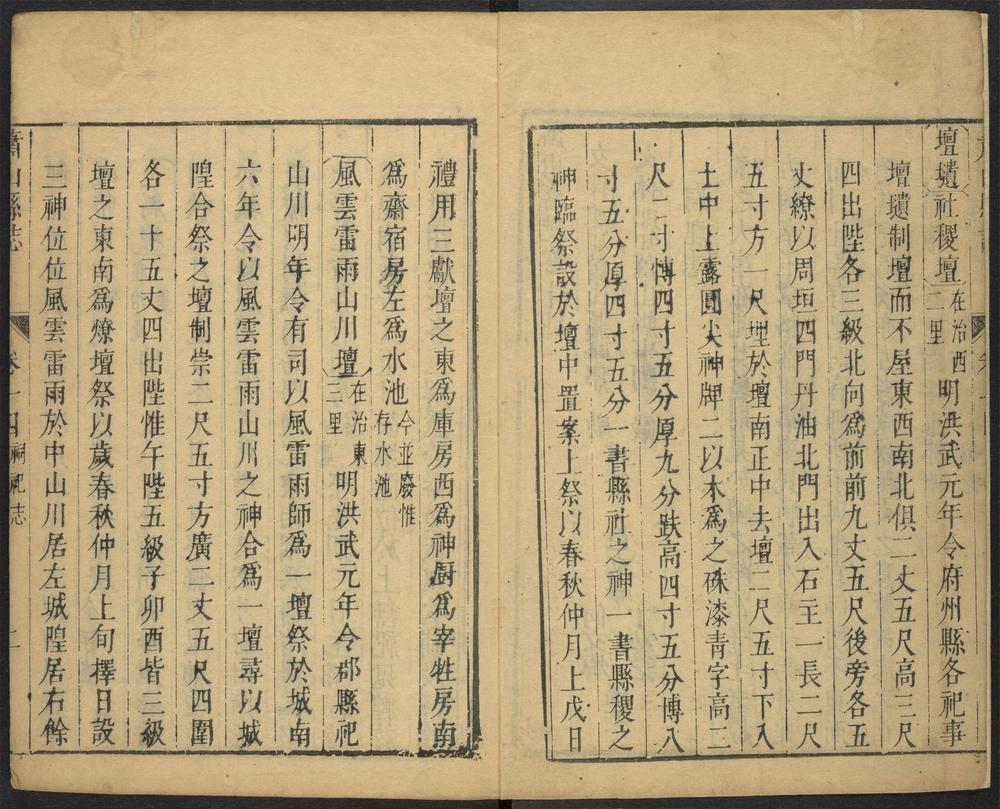 壇壝 社稷壇 在治西二里 明洪武元年令府州縣各祀事
壇壝制壇而不屋東西南北俱二丈五尺高三尺
四出陛各三級北向爲前前九丈五尺後旁各五
丈繚以周垣四門丹油北門出入石主一長二尺
五寸方一尺埋於壇南正中去壇二尺五寸下入
土中上露圓尖神牌二以木爲之硃漆青字高二
尺二寸博四寸五分厚九分趺高四寸五分博八
寸五分厚四寸五分一書縣社之神一書縣稷之
神臨祭設於壇中置案上祭以春秋仲月上戊日
禮用三獻壇之東爲庫房西爲神厨爲宰牲房南
爲齋宿房左爲水池 今並廢惟存水池
風雲雷雨山川壇 在治東三里 明洪武元年令郡縣祀
山川明年令有司以風雲雷雨師爲一壇祭於城南
六年令以風雲雷雨山川之神合爲一壇尋以城
隍合祭之壇制崇二尺五寸方廣二丈五尺四圍
各一十五丈四出陛惟午陛五級子卯酉皆三級
壇之東南爲燎壇祭以歲春秋仲月上旬擇日設
三神位位風雲雷雨於中山川居左城隍居右餘
蕭山縣志 卷十四 祠祀志 二